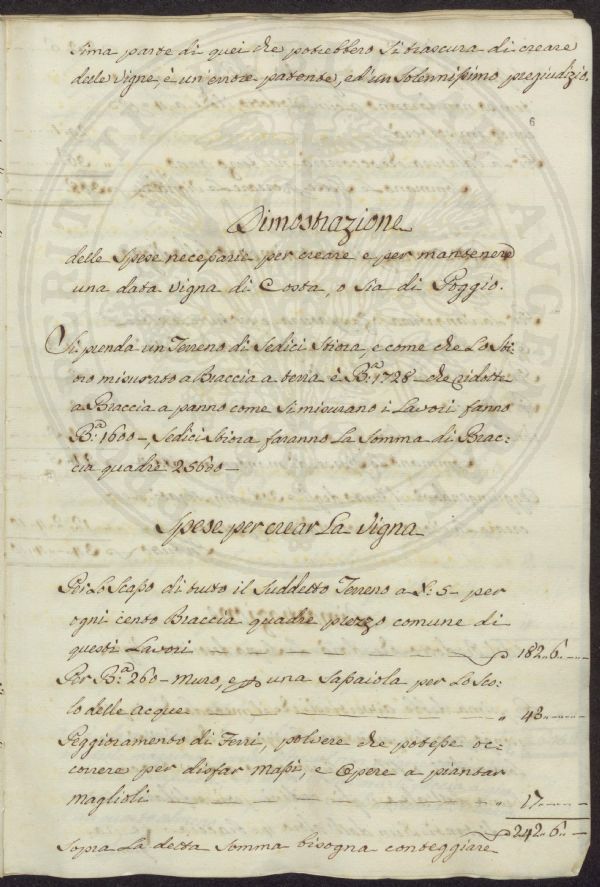 sima parte di quei che potrebbero si trascura di creare
delle vigne, è un errore patente, ed un solennissimo pregiudizio.
6
Dimostrazione
delle Spese necessarie per creare e per mantenere
una data vigna di Costa, o sia di Poggio.
Si prenda un Terreno di Sedici Stiora, e come che Lo Stio-
ro misurato a Braccia a terra è B.a 1728 - che ridotte
a Braccia a panno come si misurano i Lavori fanno
B.a 1600 -, Sedici Stiora faranno La Somma di Brac-
cia quadre 25600 -
Spese per crear La vigna
Per Lo Scasso di tutto il Suddetto Terreno a L: 5 - per
ogni cento Braccia quadre prezzo comune di
questi Lavori 182 .. 6 ..
Per B.a 260 - muro, e una Sapaiola per Lo Sco-
lo delle acque " 43 ..
Peggioramento di Ferri, polvere che potesse oc-
correre per disfar massi, e Opere a piantar
maglioli " 17 ..
242 .. 6 ..
Sopra La detta Somma bisogna conteggiare